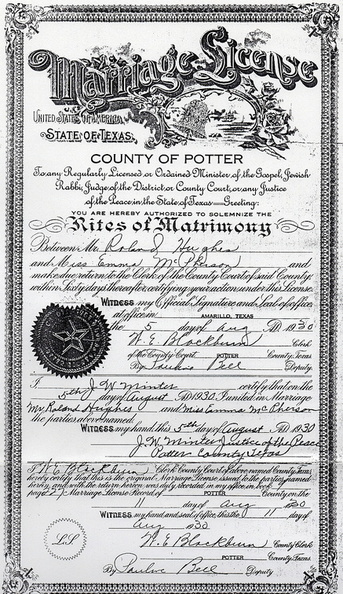 Marriage License
UNITED STATES OF AMERICA
STATE OF TEXAS,
COUNTY OF POTTER
To any Regularly Licensed or Ordained Minister of the Gospel, Jewish
Rabbi, Judge of the District or County Court, or any Justice
of the Peace in the State of Texas—Greeting:
YOU ARE HEREBY AUTHORIZED TO SOLEMNIZE THE
Rites of Matrimony
Between Mr. Roland Hughes
and Miss Emma McPherson and
make due return to the Clerk of the County Court of said County,
within Sixty days thereafter, certifying your action under this License.
WITNESS my Official Signature and Seal of office,
at office in AMARILLO, TEXAS
the 5 day of Aug AD 1930
W. E. Blackburn Clerk
of the County Court, POTTER County, Texas
By Pauline Bell Deputy
I J. W. Minter certify that on the
5th day of August AD 1930. I united in Marriage
Mr Roland Hughes and Miss Emma McPherson
the parties above named.
WITNESS my hand, this 5th day of August AD 1930
J. W. Minter Justice of the Peace
Potter County Texas
I W. E. Blackburn Clerk County Court of above named County, Texas,
hereby certify that this is the original Marriage License issued to the parties named
herein, and with the return hereon was duly recorded in my office in book
page Marriage License Record of POTTER County on the
11 day of Aug 1930
WITNESS my hand and seal of office this the 11 day of
Aug 1930
W. E. Blackburn County Clerk
POTTER County, Texas
By Pauline Bell Deputy
L.S.